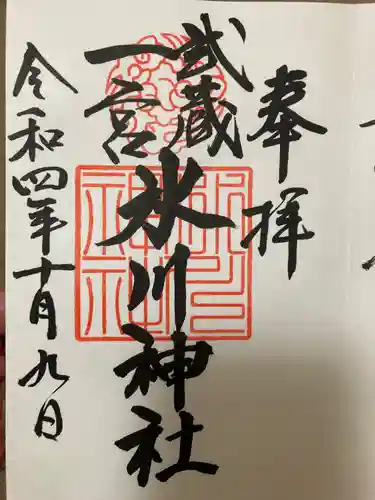 奉拝
武蔵
一宮
氷川神社
氷川
神社
令和四年十月九日